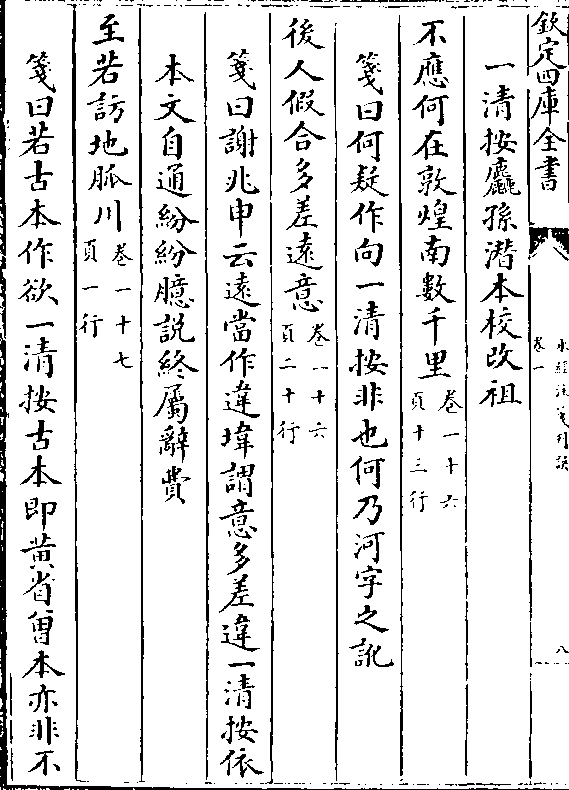 欽定四庫全書
水經注箋刊誤
卷一
八
一清按麤孫潛本校改祖
不應何在敦煌南數千里卷一十六頁十三行
箋曰何疑作向一清按非也何乃河字之訛
後人假合多差遠意卷一十六頁二十行
箋曰謝兆申云遠當作違㙔謂意多差違一清按依
本文自通紛紛臆説終屬辭費
至若訪地脈川卷一十七頁一行
箋曰若古本作欲一清按古本即黄省曾本亦非不